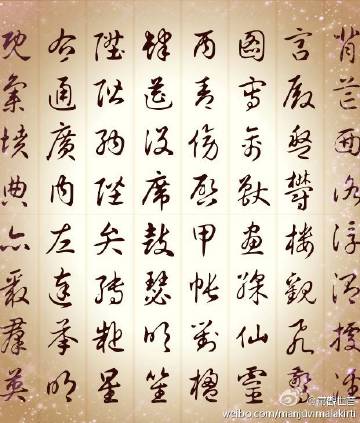 背芒面洛浮渭據涇
宮殿盤鬱樓觀飛驚
圖寫禽獸畫綵仙靈
丙舍傍啟甲帳對楹
肆筵設席鼓瑟吹笙
陞階納陛弁轉疑星
右通廣內左達承明
既集墳典亦聚羣英
weibo.com/manjuvimalakirti